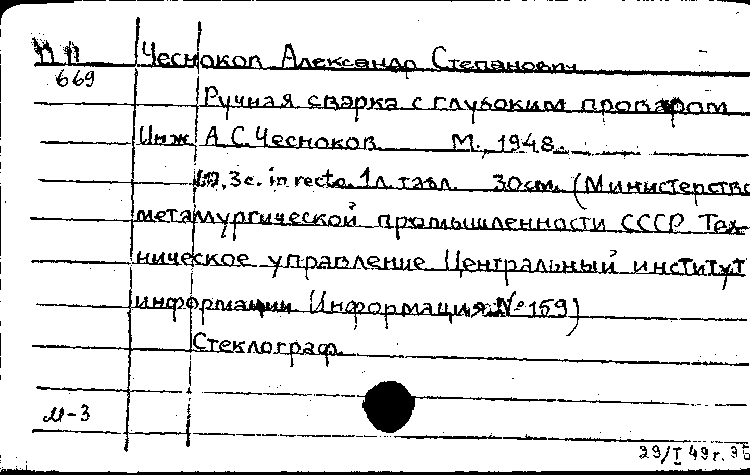 Чеснокоп Александр Степанович
669
Ручная сварка с глубоким проваром
Инж А.С.Чесноков М., 1948.
3 с. in recto. 1 л. табл. 30см. (Министерство
металлургической промышленности СССР Тех-
ническое управление Центральный институт
информации Информация № 159)
Стеклограф.
М-3
29/I 49 г.